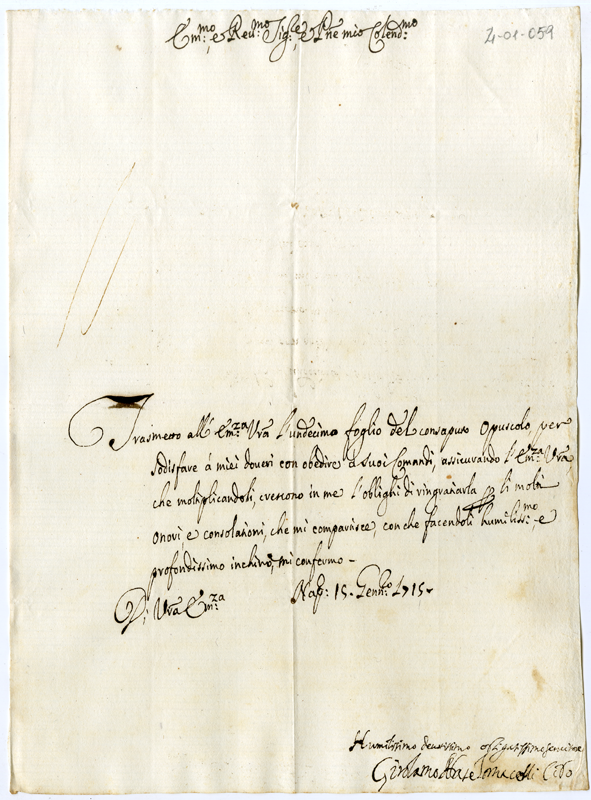 Em:mo e Reu:mo Sig:re, e Pne mio Colend:mo
4-01-059
Trasmetto all' Em:za Vra l'undecimo foglio del consaputo Opuscolo per
sodisfare à miei doueri con obedire à suoi Comandi, assicurando l'Em:za Vra
che moltiplicandoli, crescono in me l'oblighi di ringratiarla li molti
onori, e consolationi, che mi compartisce, con che facendoli humiliss:mo, e
profondissimo inchino, mi confermo -
Di Vra Em:za
Nap: 15. Genn:o 1715.
Humilissimo deuotissimo obligatissimo seruitore
Girolamo Tomacelli Cibo